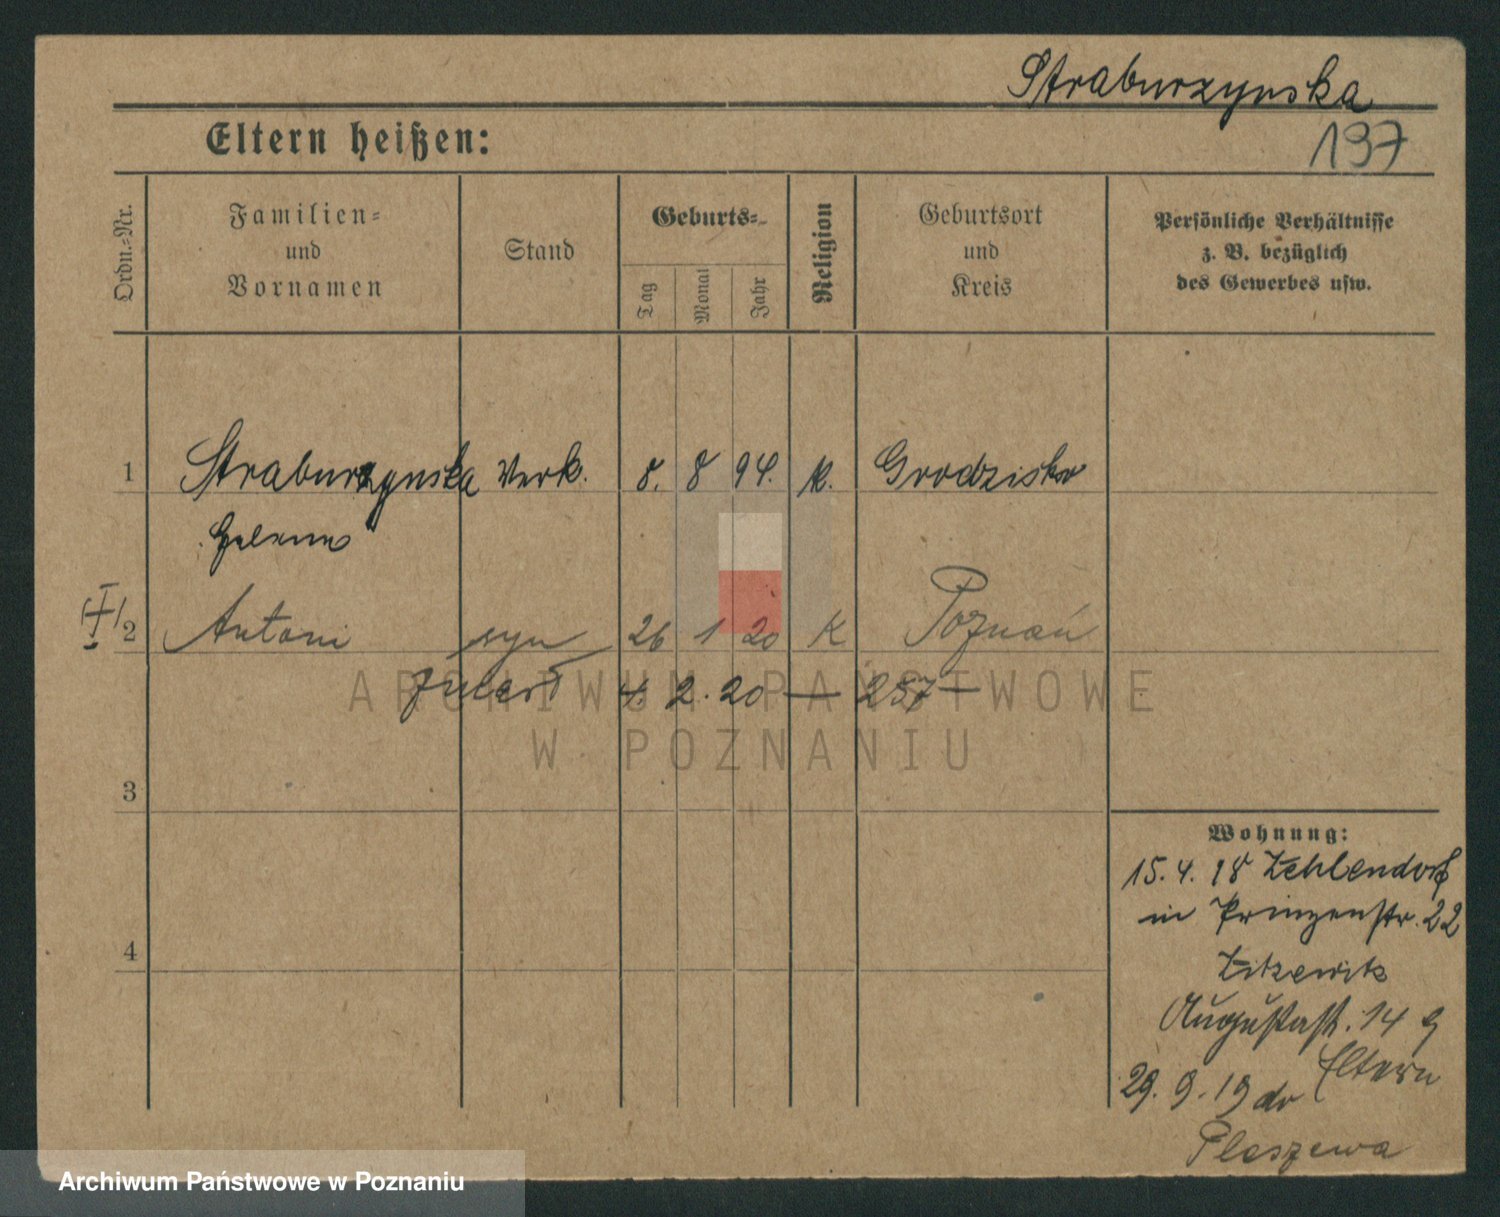 Straburzynska
197
Eltern heißen:
Ordn.=Nr.
Familien=
und
Vornamen
Stand
Geburts=
Tag
Monat
Jahr
Religion
Geburtsort
und
Kreis
Persönliche Verhältnisse
z. B. bezüglich
des Gewerbes usw.
1 Straburzynska Verk. 8. 8 94. K. Grodzisko
Helene
2 Antoni syn 26 1 20 K Poznań
zmarł 4. 2. 20 — 257 —
3
4
Wohnung:
15. 4. 18 Zehlendorf
in Prinzenstr. 22
Zitzewitz
Augustastr. 14
Eltern
29. 9. 19 do
Pleszewa
ARCHIWUM PAŃSTWOWE
W POZNANIU
Archiwum Państwowe w Poznaniu